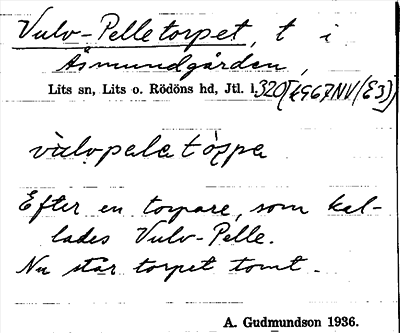 Vulv-Pelletorpet, t i
Åsmundgården,
Lits sn, Lits o. Rödöns hd, Jtl. l. 320 [4967NV(E3)]
vùlvpalatòppa
Efter en torpare, som kal-
lades Vulv-Pelle.
Nu står torpet tomt.
A. Gudmundson 1936.